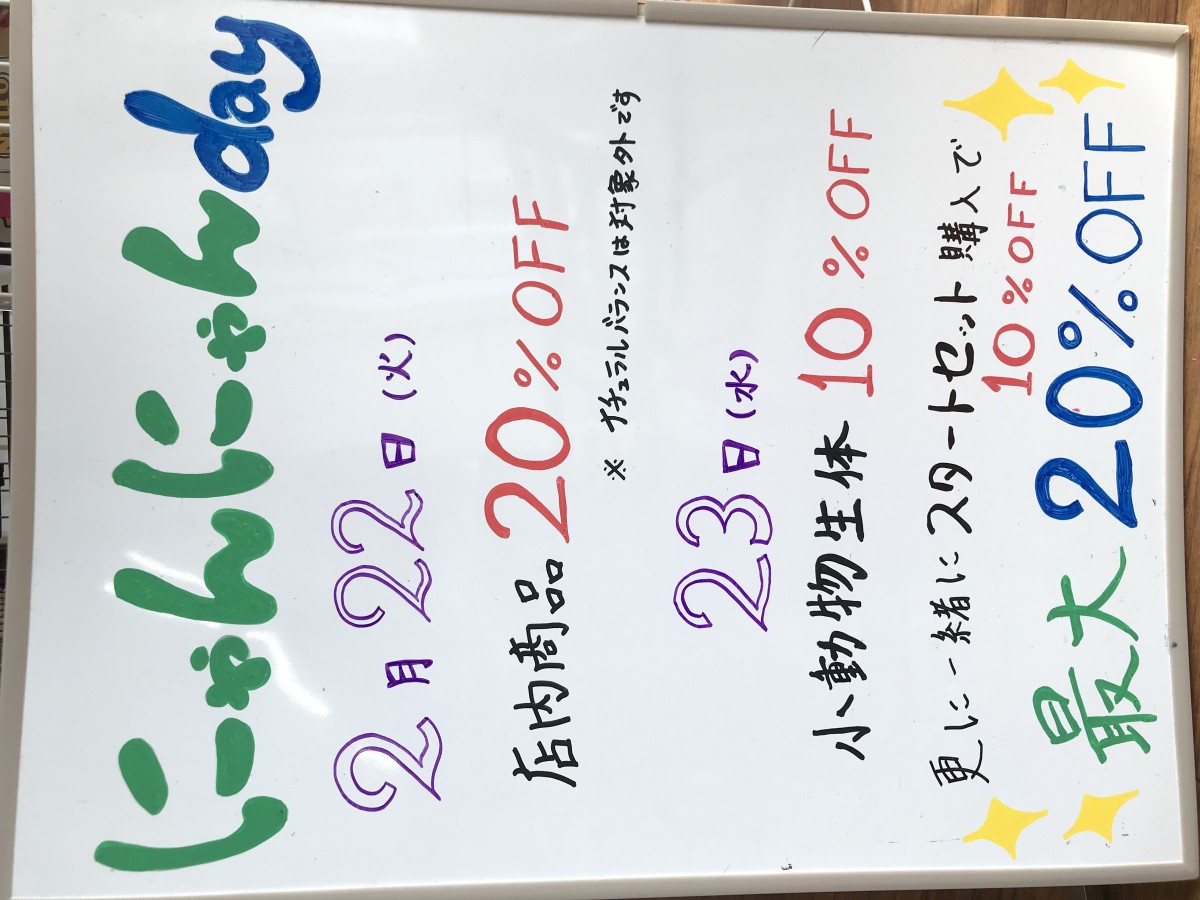 にゃんにゃんday
2月22日(火)
店内商品20%OFF
※ナチュラルバランスは対象外です
23日(水)
小動物生体10%OFF
更に一緒にスタートセット購入で
10%OFF
最大20%OFF